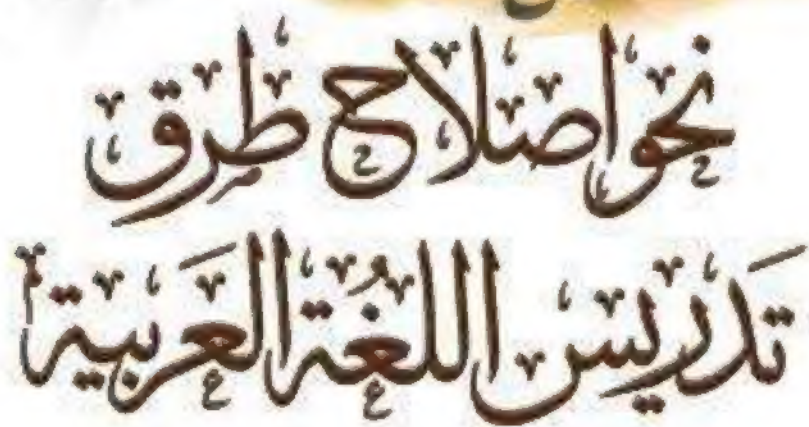 نحو اصلاح طرق
تدريس اللغة العربية